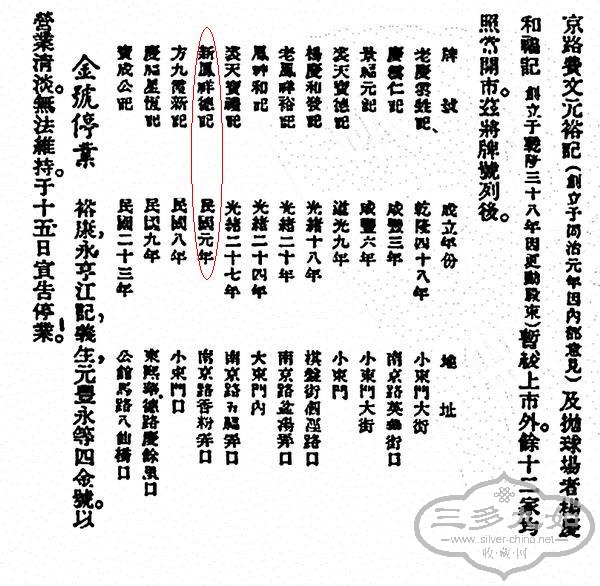 京路費文元裕記(創立于同治元年因內部意見)及抛球場者楊慶
和福記(創立于乾隆三十八年因更動股東)暫缺上市外。餘十二家均
照常開市。茲將牌號列後。
牌號 成立年份 地址
老慶雲甡記、 乾隆四十八年 小東門大街
慶雲仁記 咸豐三年 南京路英華街口
景福元記 咸豐六年 小東門大街
裘天寶德記 道光九年 小東門
楊慶和發記 光緒十八年 棋盤街涇路口
老鳳祥裕記 光緒二十年 南京路盆湯弄口
鳳祥和記 光緒二十四年 大東門內
裘天寶禮記 光緒二十七年 南京路福弄口
新鳳祥德記 民國元年 南京路香粉弄口
方九霞新記 民國八年 小東門口
慶福星恆記 民國九年 東熙華德路慶餘里口
寶成公記 民國二十三年 公館馬路八仙橋口
金號停業 裕康,永亨江記,義生,元豐永等四金號。以
營業清淡。無法維持。于十五日宣告停業。
三多九如
www.silver-china.net
收·藏·网